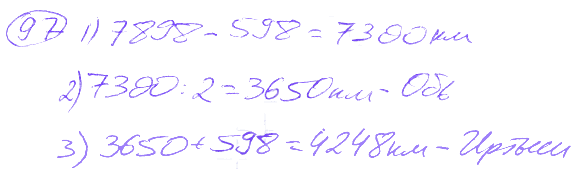 97 1) 7898 - 598 = 7300 км
2) 7300 : 2 = 3650 км - Обь
3) 3650 + 598 = 4248 км - Иртыш